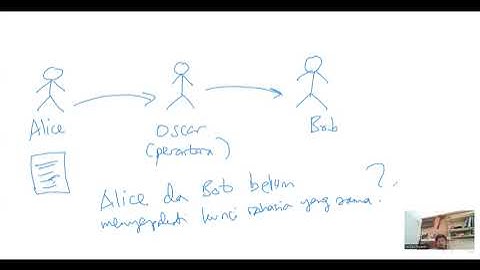 Alice
Oscar
(perantara)
Bob
Alice dan Bob belum
menyepakati kunci rahasia yang sama?